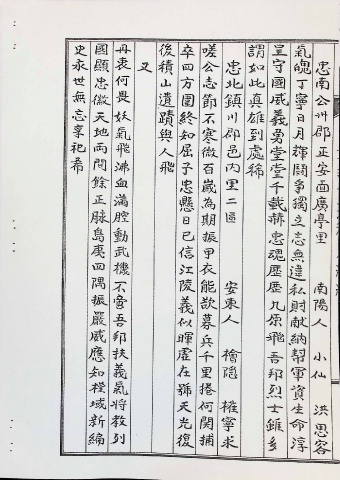 忠南公州郡正安面廣亭里　南陽人　小仙　洪思容
氣魄丁寧日月輝鬪爭獨立志無違私財献納幇軍資生命淳
呈守國威義勇堂堂千載赫忠魂歷歷九原飛吾邦烈士雖多
謂如此眞雄到處稀
忠北鎭川郡邑內里二區　安東人　檜隱　權寧求
嗟公志節不寒微百歲為期振甲衣能歃募兵千里捲何関捕
卒四方圍終知屈子忠懸日已信江陵義似暉虛在號天光復
後積山遺蹟與人飛
又
丹衷何畏妖氣飛沸血滿腔動武機不啻吾邦扶義氣將教列
國顯忠徽天地兩間餘正脉島夷四隅振嚴威應知槿域新編
史永世無忘享祀希